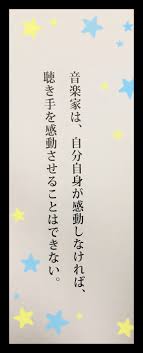 音楽家は、自分自身が感動しなければ、
聴き手を感動させることはできない。